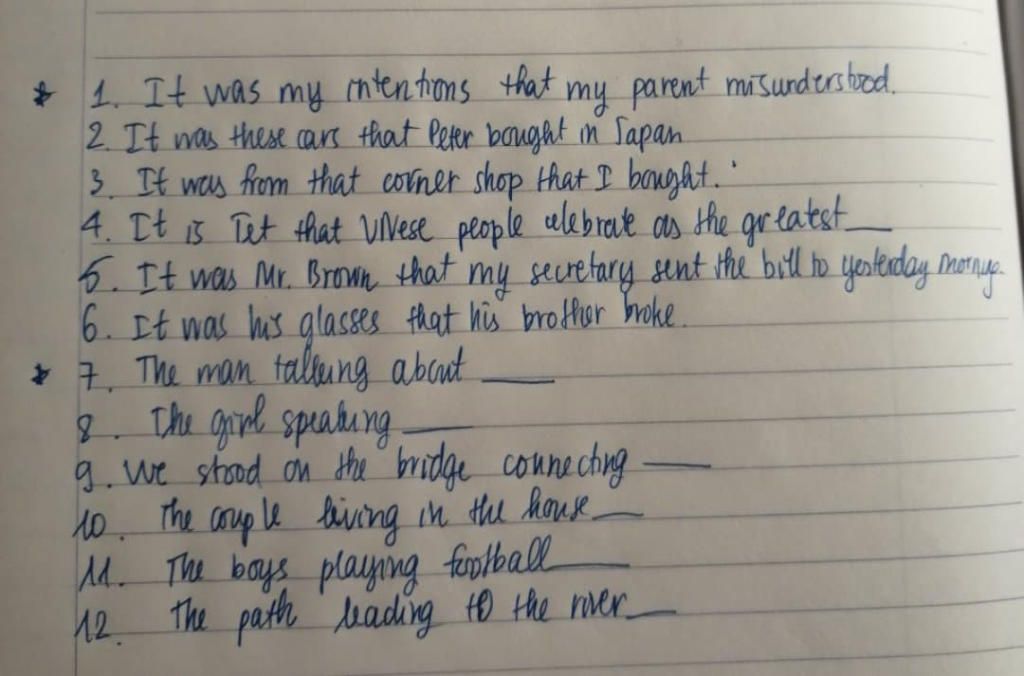 * 1. It was my intentions that my parent misunderstood.
2. It was these cars that Peter bought in Japan
3. It was from that corner shop that I bought.
4. It is Tet that VNese people celebrate as the greatest __
5. It was Mr. Brown that my secretary sent the bill to yesterday morng.
6. It was his glasses that his brother broke.
* 7. The man talking about __
8. The girl speaking __
9. We stood on the bridge connecting __
10. The couple living in the house __
11. The boys playing football __
12. The path leading to the river __